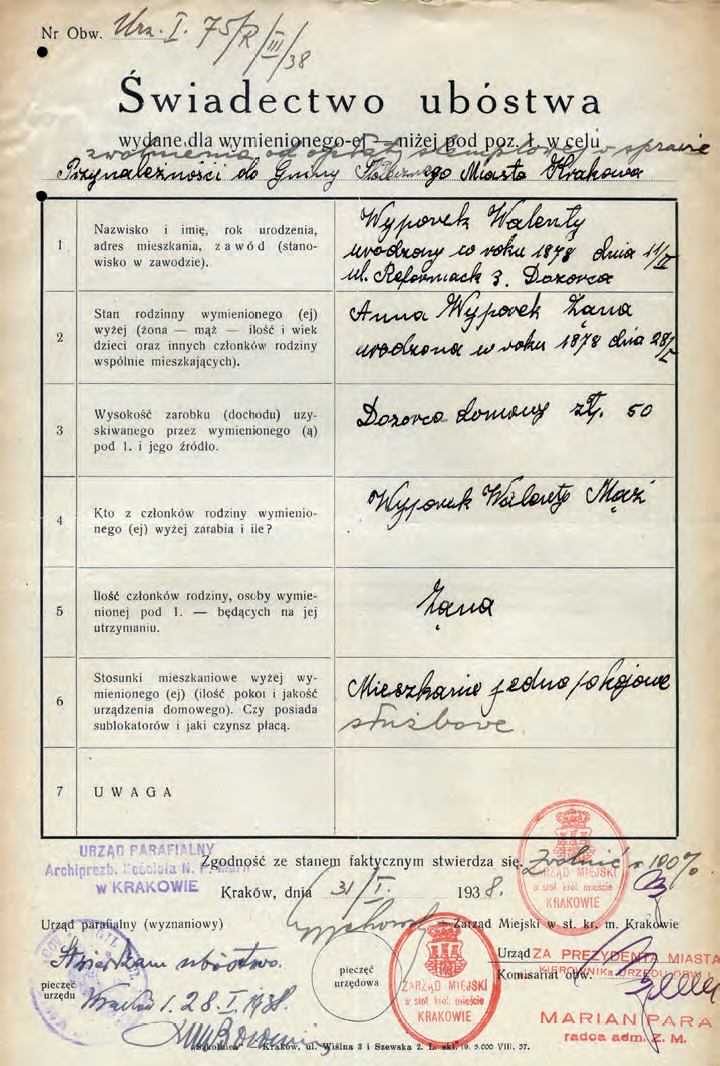 Nr Obw. Urz. I. 75/R/III/38
Świadectwo ubóstwa
wydane dla wymienionego-ej — niżej pod poz. 1. w celu
zwolnienia od opłat stemplowej w sprawie
Przynależności do Gminy Stołecznego Miasta Krakowa
1 Nazwisko i imię, rok urodzenia,
adres mieszkania, zawód (stano-
wisko w zawodzie).
Wyporek Walenty
urodzony w roku 1878 dnia 11/II
ul. Reformack 3. Dozorca
2 Stan rodzinny wymienionego (ej)
wyżej (żona — mąż — ilość i wiek
dzieci oraz innych członków rodziny
wspólnie mieszkających).
Anna Wyporek Żąna
urodzona w roku 1878 dnia 28/V
3 Wysokość zarobku (dochodu) uzy-
skiwanego przez wymienionego (ą)
pod 1. i jego źródło.
Dozorca domowy zł. 50
4 Kto z członków rodziny wymienio-
nego (ej) wyżej zarabia i ile?
Wyporek Walenty Mąż
5 Ilość członków rodziny, osoby wymie-
nionej pod 1. — będących na jej
utrzymaniu.
Żąna
6 Stosunki mieszkaniowe wyżej wy-
mienionego (ej) (ilość pokoi i jakość
urządzenia domowego). Czy posiada
sublokatorów i jaki czynsz płacą.
Mieszkanie jedno pokojowe
służbowe
7 UWAGA
URZĄD PARAFIALNY
Archiprezb. Kościoła N. P. Marii
W KRAKOWIE
Zgodność ze stanem faktycznym stwierdza się. Zwolnić 100%
Kraków, dnia 31/I. 1938.
ZARZĄD MIEJSKI
w stoł. król. mieście
KRAKOWIE
Urząd parafialny (wyznaniowy)
Zarząd Miejski w st. kr. m. Krakowie
Stwierdzam ubóstwo.
Urząd ZA PREZYDENTA MIASTA
Komisariat obw. KIEROWNIK URZĘDU OBW.
pieczęć
urzędu
pieczęć
urzędowa
ZARZĄD MIEJSKI
w stoł. król. mieście
KRAKOWIE
28 I. 1938.
MARIAN PARA
radca adm. Z. M.
„Szkolnica" Kraków, ul. Wiślna 3 i Szewska 2. L. skł. 19. 5.000 VIII. 37.